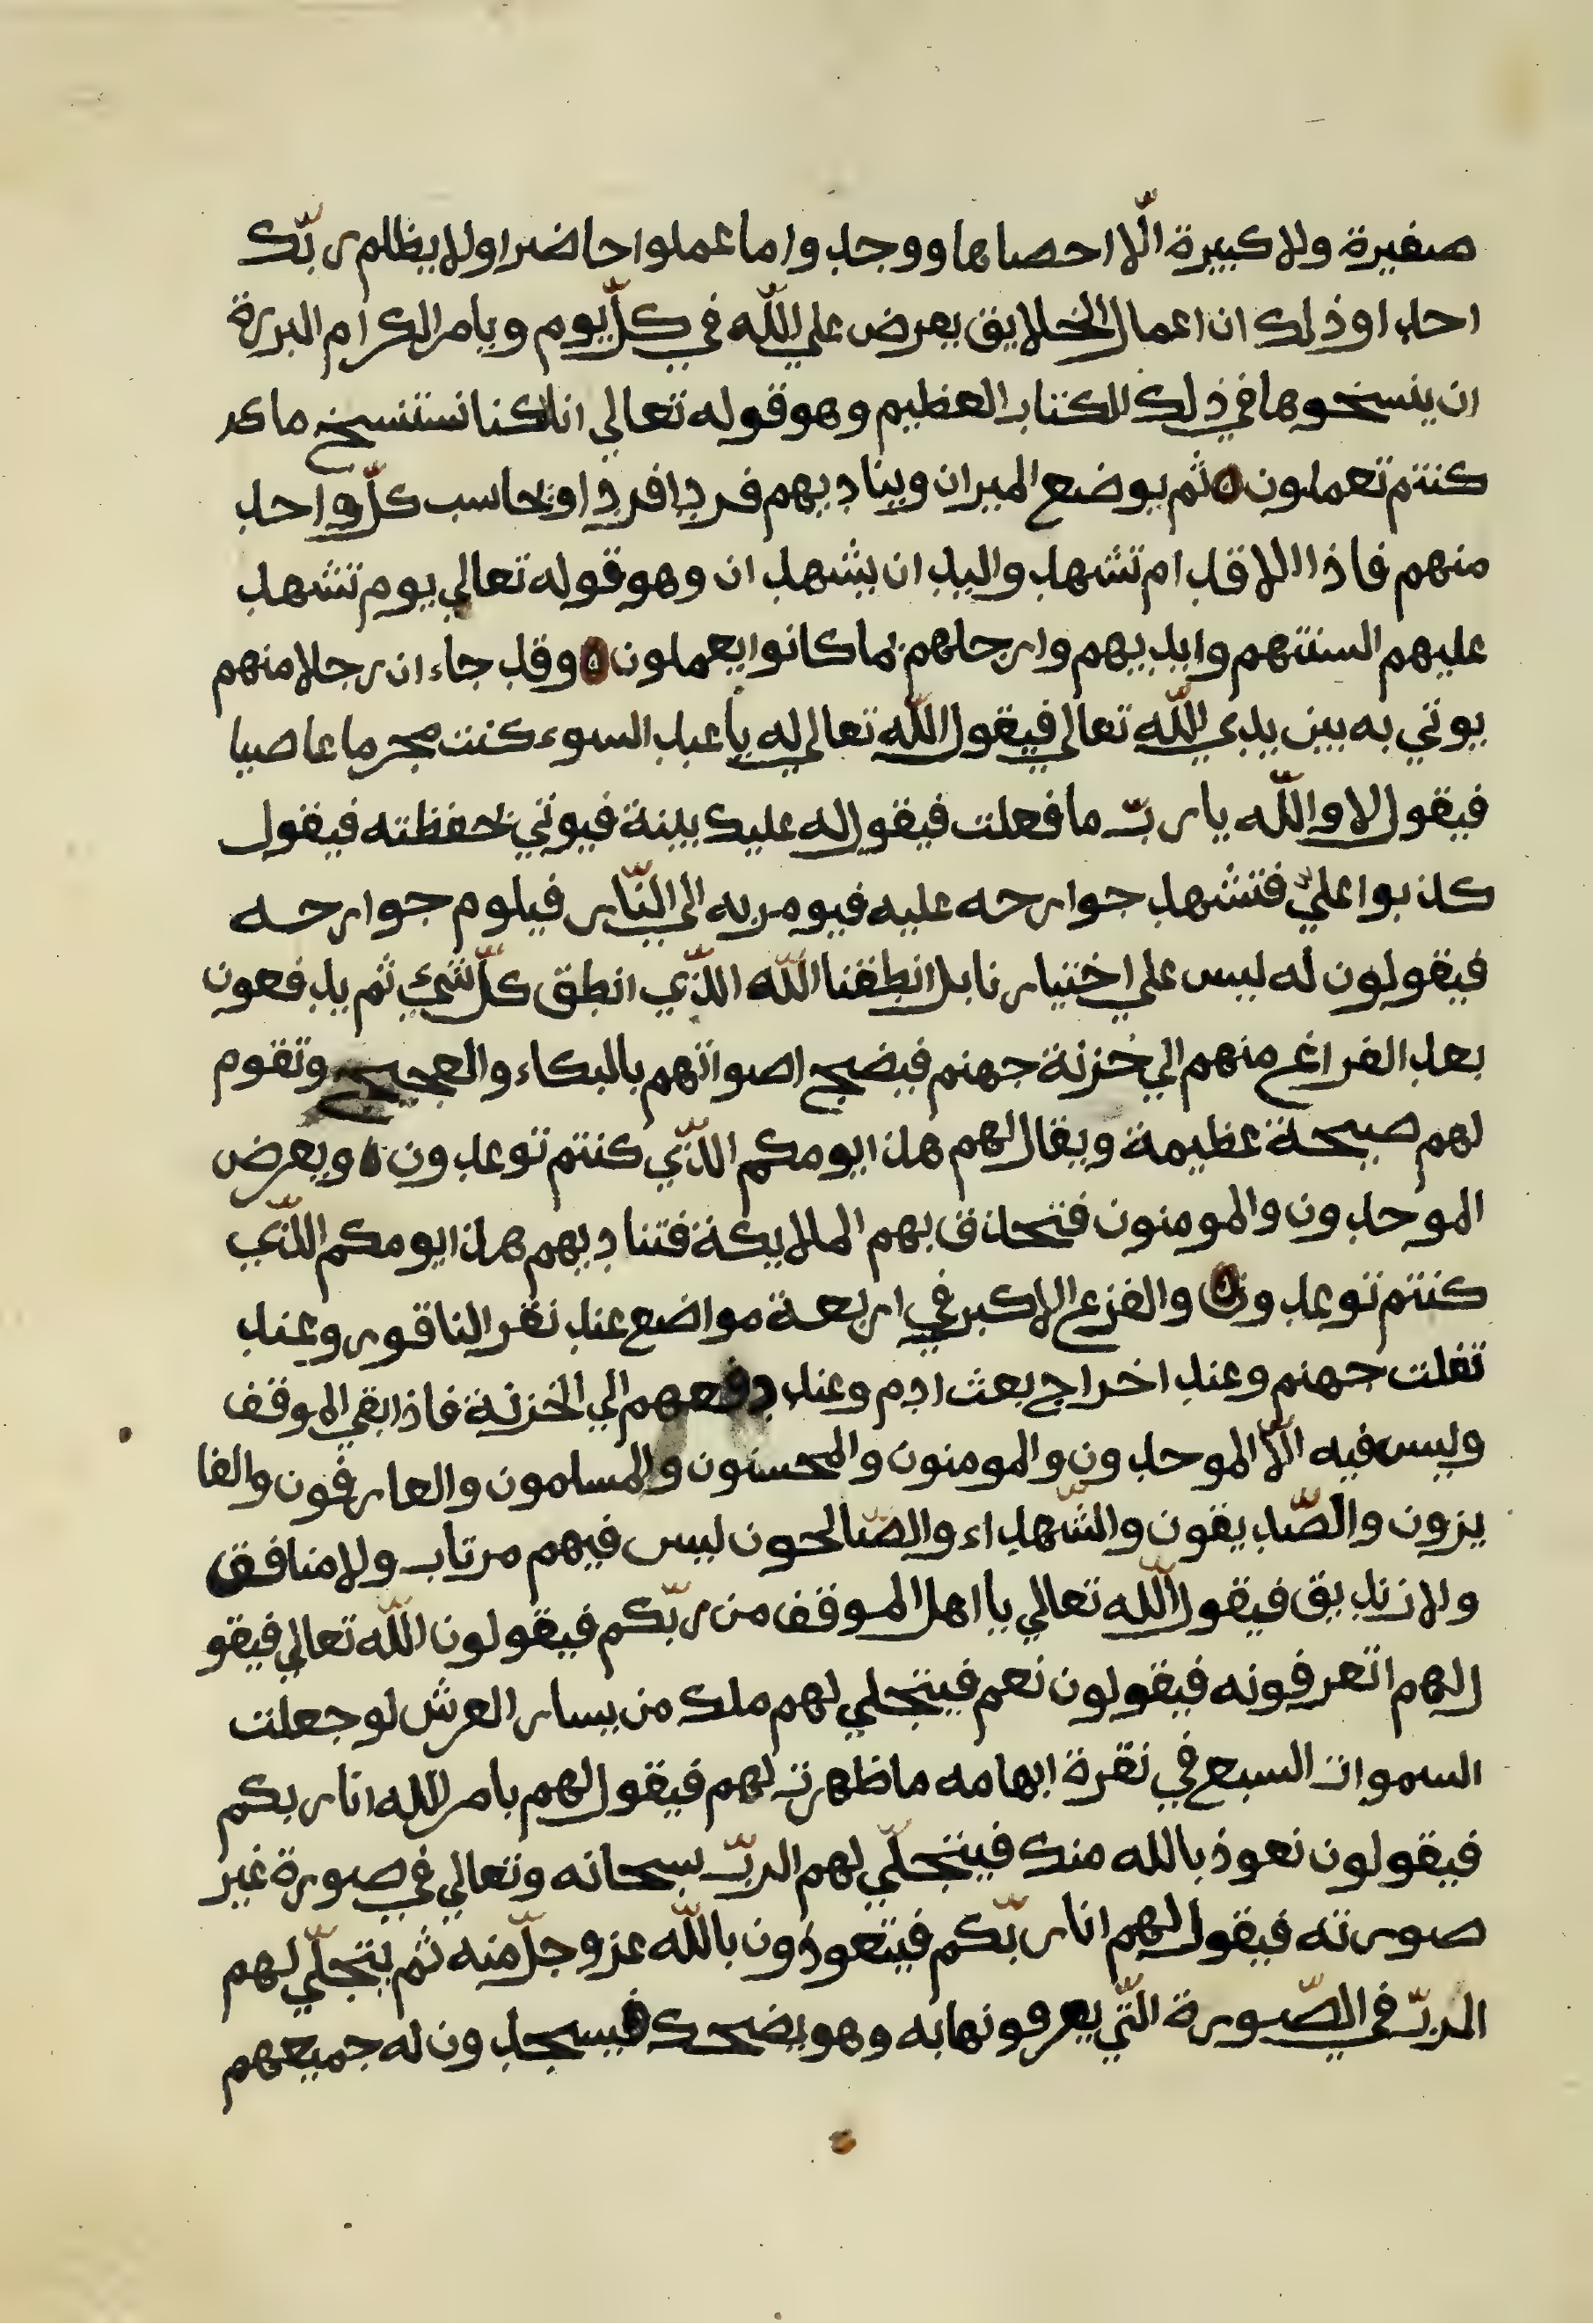 صغيرة ولا كبيرة الّا احصاها ووجدوا ما عملوا حاضرا ولا يظلم ربّك
احدا وذلك ان اعمال الخلايق يعرض علي اللّه في كلّ يوم ويامر الكرام البررة
ان ينسخوها في ذلك الكتاب العظيم وهو قوله تعالي انا كنا نستنسخ ما كد
كنتم تعملون ثم يوضع الميزان ويناديهم فردا فردا ويحاسب كلّ واحد
منهم فاذا الاقدام تشهد واليدان يشهدان وهو قوله تعالي يوم تشهد
عليهم السنتهم وايديهم وارجلهم بما كانوا يعملون وقد جاء ان رجلا منهم
يوتي به بين يدي اللّه تعالي فيقول اللّه تعالي له يا عبد السوء كنت مجرما عاصيا
فيقول لا واللّه يا ربّ ما فعلت فيقول له عليك بينة فيوتي بحفظته فيقول
كذبوا عليّ فتشهد جوارحه عليه فيومر به الي النّار فيلوم جوارحه
فيقولون له ليس علي اختيارنا بل انطقنا اللّه الّذي انطق كلّ شيء ثم يدفعون
بعد الفراغ منهم الي خزنة جهنم فيضج اصواتهم بالبكاء والعجيج وتقوم
لهم صيحة عظيمة ويقال لهم هذا يومكم الّذي كنتم توعدون ويعرض
الموحدون والمومنون فتحذق بهم الملايكة فتناديهم هذا يومكم الّذي
كنتم توعدون والفزع الاكبر في اربعة مواضع عند نقر الناقور وعند
تفلت جهنم وعند اخراج بعث ادم وعند دفعهم الي الخزنة فاذا بقي الموقف
وليس فيه الّا الموحدون والمومنون والمحسنون والمسلمون والعارفون والفا
يزون والصّديقون والشّهداء والصّالحون ليس فيهم مرتاب ولا منافق
ولا زنديق فيقول اللّه تعالي يا اهل الموقف من ربّكم فيقولون اللّه تعالي فيقو
ل لهم اتعرفونه فيقولون نعم فيتجلي لهم ملك من يسار العرش لو جعلت
السموات السبع في نقرة ابهامه ما ظهرت لهم فيقول لهم بامر اللّه انا ربكم
فيقولون نعوذ بالله منك فيتجلّي لهم الربّ سبحانه وتعالي في صورة غير
صورته فيقول لهم انا ربّكم فيتعوذون باللّه عز وجلّ منه ثم يتجلّي لهم
الربّ في الصّورة الّتي يعرفونها به وهو يضحك فيسجدون له جميعهم